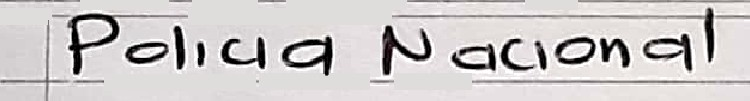 Policia Nacional